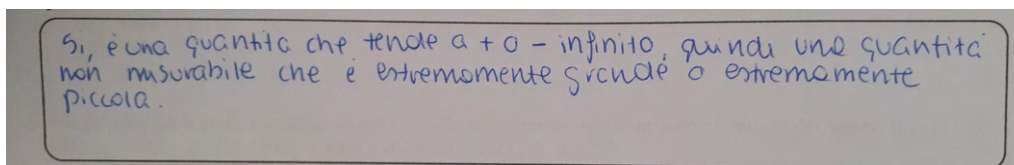 Si, è una quantità che tende a + o - infinito, quindi una quantità
non misurabile che è estremamente grande o estremamente
piccola.